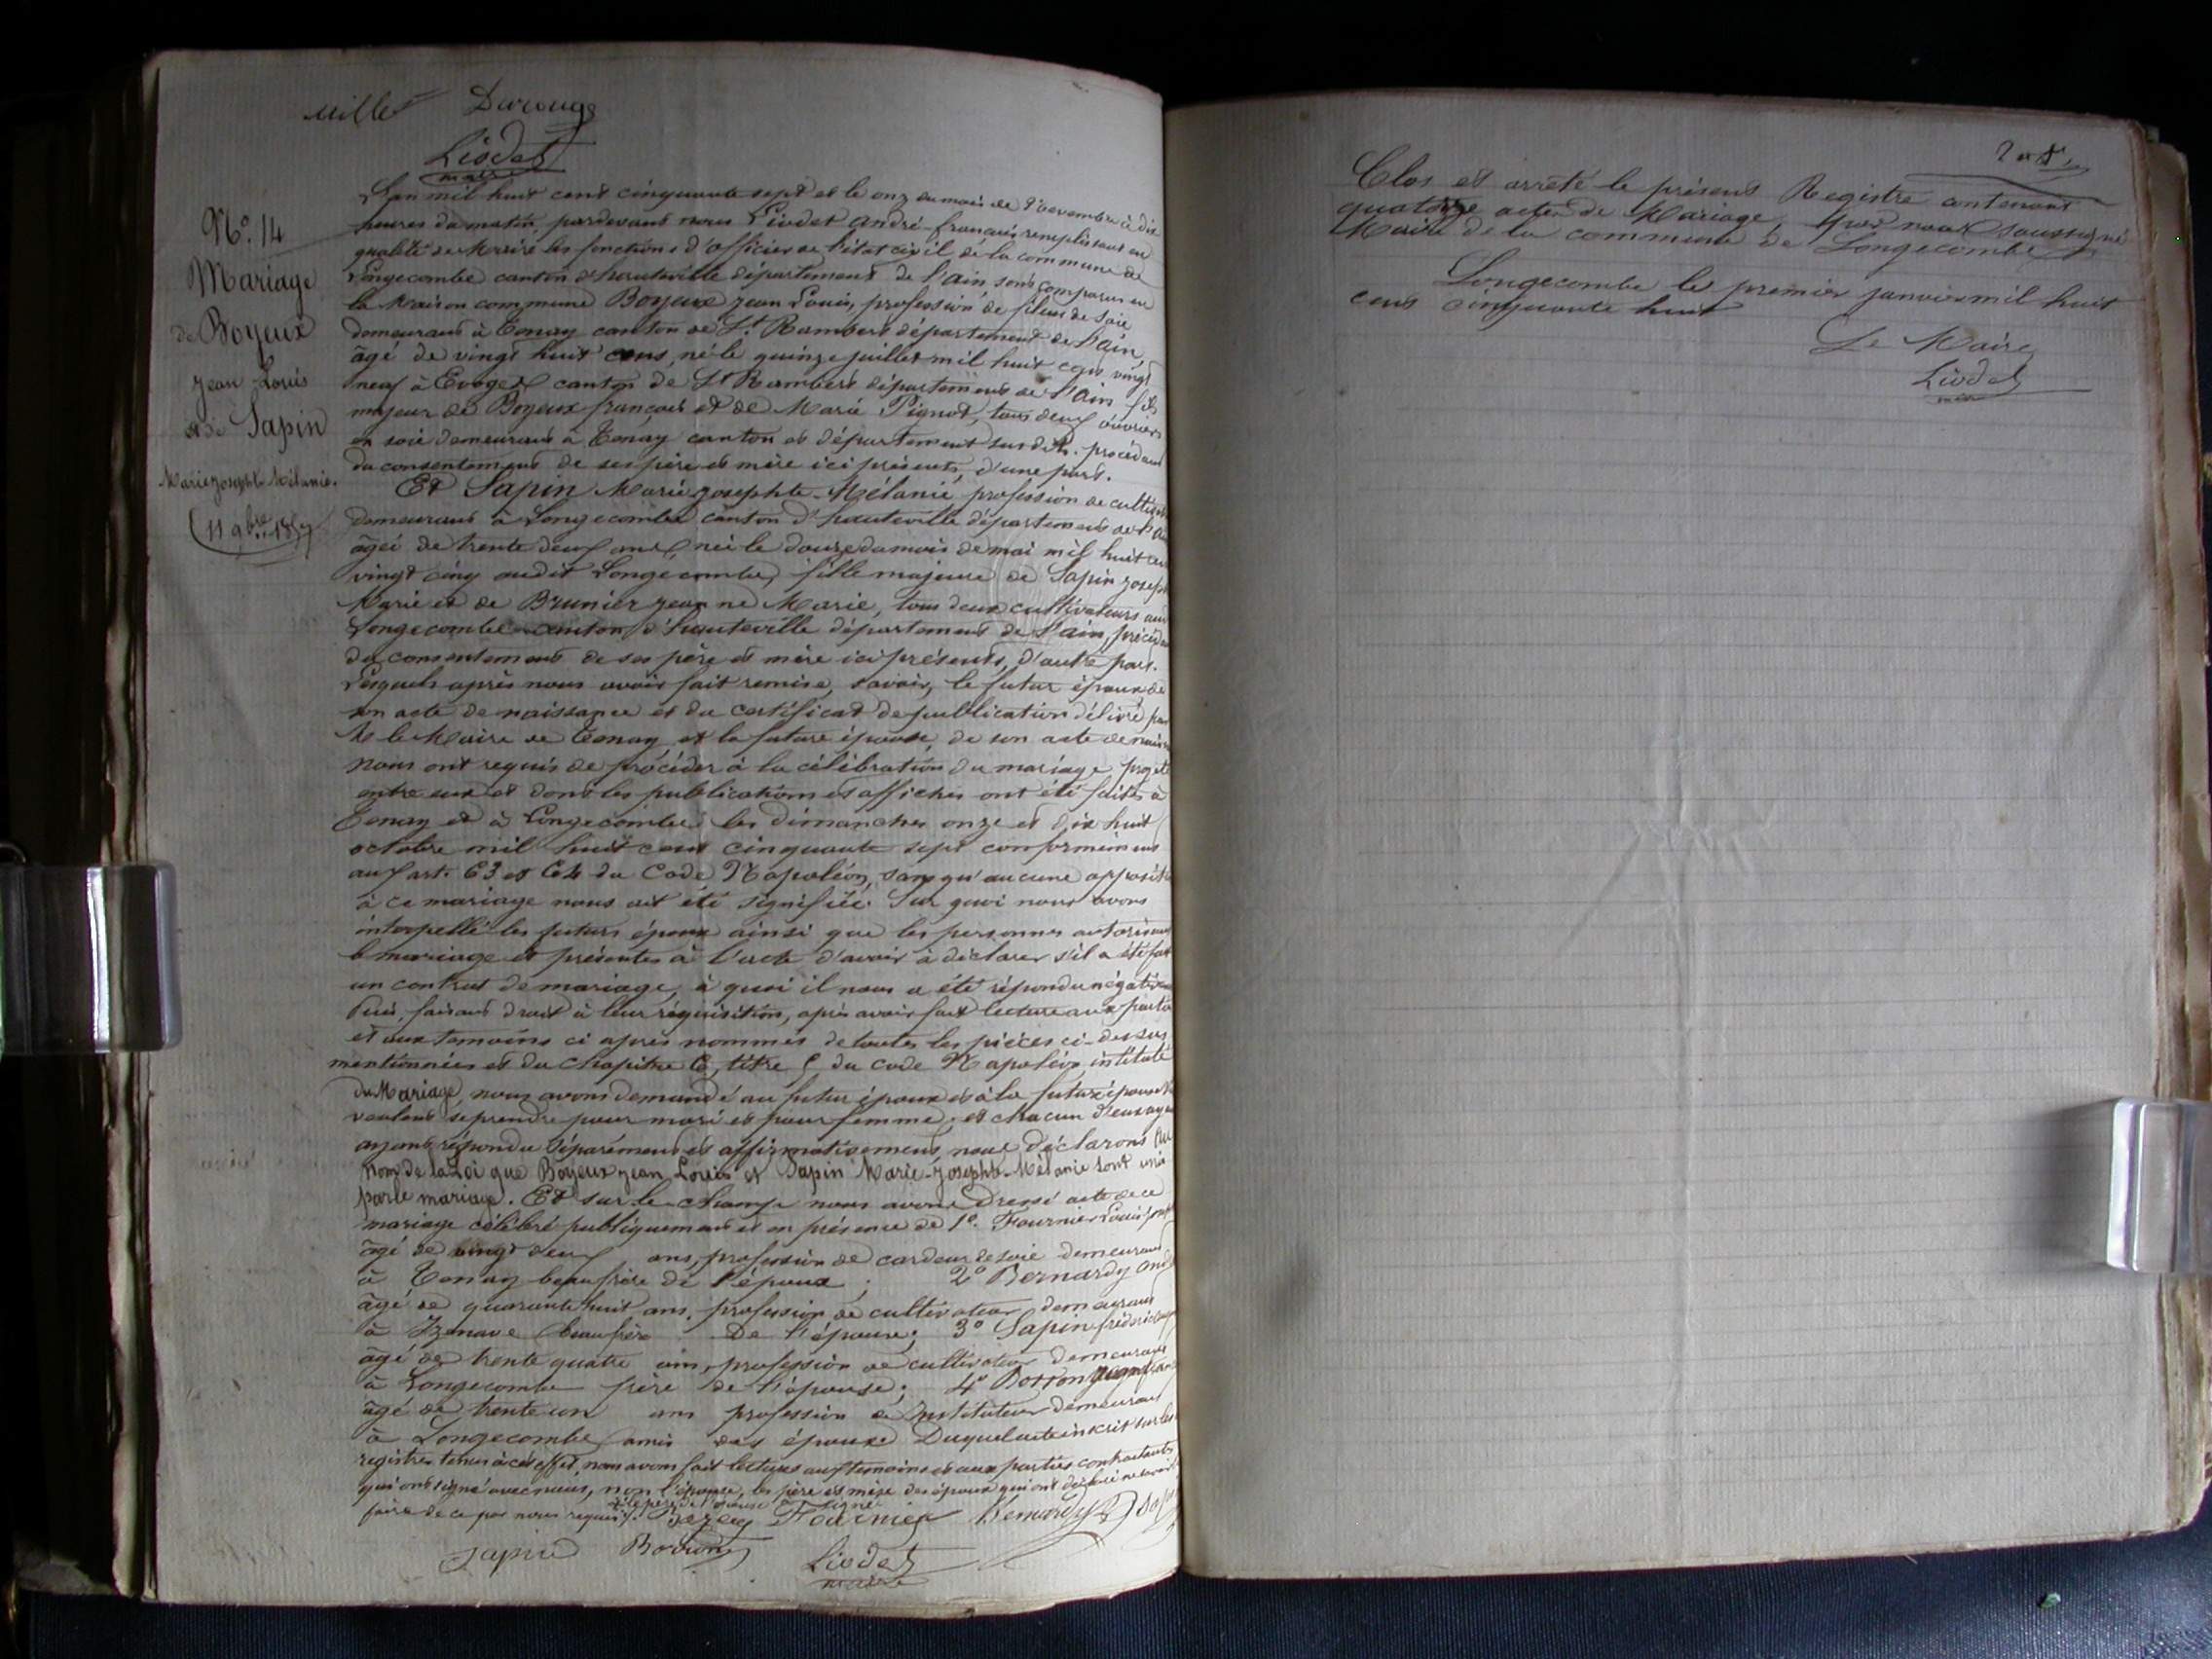 Mille Durouge
Liodet
maire
N.° 14
Mariage
de Boyeux
Jean Louis
et de Sapin
Marie Josephte Mélanie.
(11 9bre 1857
L'an mil huit cent cinquante sept et le onz du mois de 9bovembre à dix
heures du matin, pardevant nous Liodet andré-francois remplissant en
qualité de Maire les fonctions d'officier de l'état civil de la commune de
Longecombe canton d'hauteville département de l'ain sont comparus en
la Maison commune Boyeux jean Louis, profession de fileur de soie
demeurant à Tenay canton de St. Rambert département de l'ain,
âgé de vingt huit ans, né le quinze juillet mil huit cent vingt
neuf à Evoges canton de St Rambert département de l'ain fils
majeur de Boyeux françois et de Marie Pignot, tous deux ouvriers
en soie demeurant à Tenay canton et département susdits. procédant
du consentement de ses père et mère ici présents, d'une part.
Et Sapin Marie josephte-Mélanie profession de
demeurant à Longecombe canton d'hauteville département de l'
âgée de trente deux ans née le douze du mois de mai mil huit cent
vingt cinq audit Longecombe, fille majeure de Sapin joseph
Marie et de Brunier jeanne Marie, tous deux cultivateurs
Longecombe canton d'hauteville département de l'ain,
du consentement de ses père et mère ici présents, d'autre part.
Lesquels après nous avoir fait remise, savoir, le futur époux de
son acte de naissance et du certificat de publication délivré par
M le Maire de Tenay et la future épouse, de son acte de
nous ont requis de procéder à la célébration du mariage projeté
entre eux et dont les publications et affiches ont été faites à
Tenay et à Longecombe les dimanches onze et dix huit
octobre mil huit cent cinquante sept conformément
aux arts 63 et 64 du Code Napoléon, sans qu'aucune
à ce mariage nous ait été signifiée. Sur quoi nous avons
interpellé les futurs époux ainsi que les personnes autorisant
le mariage et présentes à l'acte d'avoir à déclarer s'il a été fait
un contrat de mariage, à quoi il nous a été répondu
Puis, faisant droit à leur réquisition, après avoir fait lecture aux
et aux temoins ci après nommés de toutes les pièces ci-dessus
mentionnées et du chapitre 6, titre 5 du code Napoléon intitulé
du Mariage, nous avons demandé au futur époux et à la future épouse
voulent se prendre pour mari et pour femme, et chacun d'eux
ayant répondu séparément et affirmativement, nous déclarons au
nom de la Loi que Boyeux jean Louis et Sapin Marie-Josephte-Mélanie sont unis
par le mariage. Et sur-le-champ nous avons dressé acte de ce
mariage célébré publiquement et en présence de 1°. Fournier Louis
âgé de vingt deux ans, profession de cardeur de soie demeurant
à Tenay beaufrère de l'époux ; 2° Bernardy
âgé de quarante huit ans, profession de cultivateur demeurant
à Izenave beaufrère De l'épouse; 3° Sapin
âgé de trente quatre ans, profession de cultivateur demeurant
à Longecombe frère de l'épouse; 4° Borron
âgé de trente un ans profession d'Instituteur demeurant
à Longecombe amis des époux Duquel acte inscrit sur les
registres tenus à cet effet, nous avons fait lecture aux temoins et aux parties contractants
qui ont signé avec nous, non l'épouse, les père et mère des époux qui ont déclaré ne savoir
et le père de l'épouse signé
faire de ce par nous requis. Fournier Bernardy
Sapin Borron Liodet
maire
Clos et arreté le présent Registre contenant
quatorze actes de Mariage, par nous soussigné
Maire de la commune de Longecombe
Longecombe le premier janvier mil huit
cent cinquante huit
Le Maire
Liodet